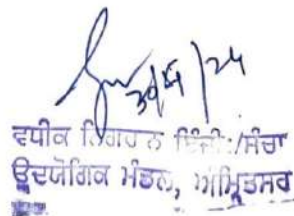 30/5/24
ਵਧੀਕ ਨਿਗਰਾਨ ਇੰਜੀ:/ਸੰਚਾ
ਉਦਯੋਗਿਕ ਮੰਡਲ, ਅੰਮ੍ਰਿਤਸਰ